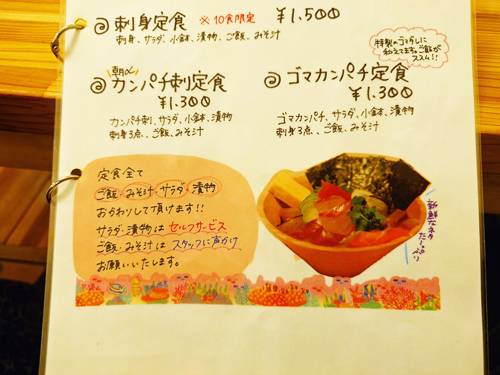 刺身定食 ※10食限定 ¥1,500
刺身、サラダ、小鉢、漬物、ご飯、みそ汁
特製のゴマダレに
和えてます。ご飯が
ススム!!
朝〆
カンパチ刺定食
¥1,300
カンパチ刺、サラダ、小鉢、漬物
刺身3点、ご飯、みそ汁
ゴマカンパチ定食
¥1,300
ゴマカンパチ、サラダ、小鉢、漬物
刺身3点、ご飯、みそ汁
定食全て
ご飯・みそ汁・サラダ・漬物
おかわりして頂けます!!
サラダ・漬物はセルフサービス
ご飯・みそ汁はスタッフに声かけ
お願いいたします。
新鮮なネタ
たーっぷり